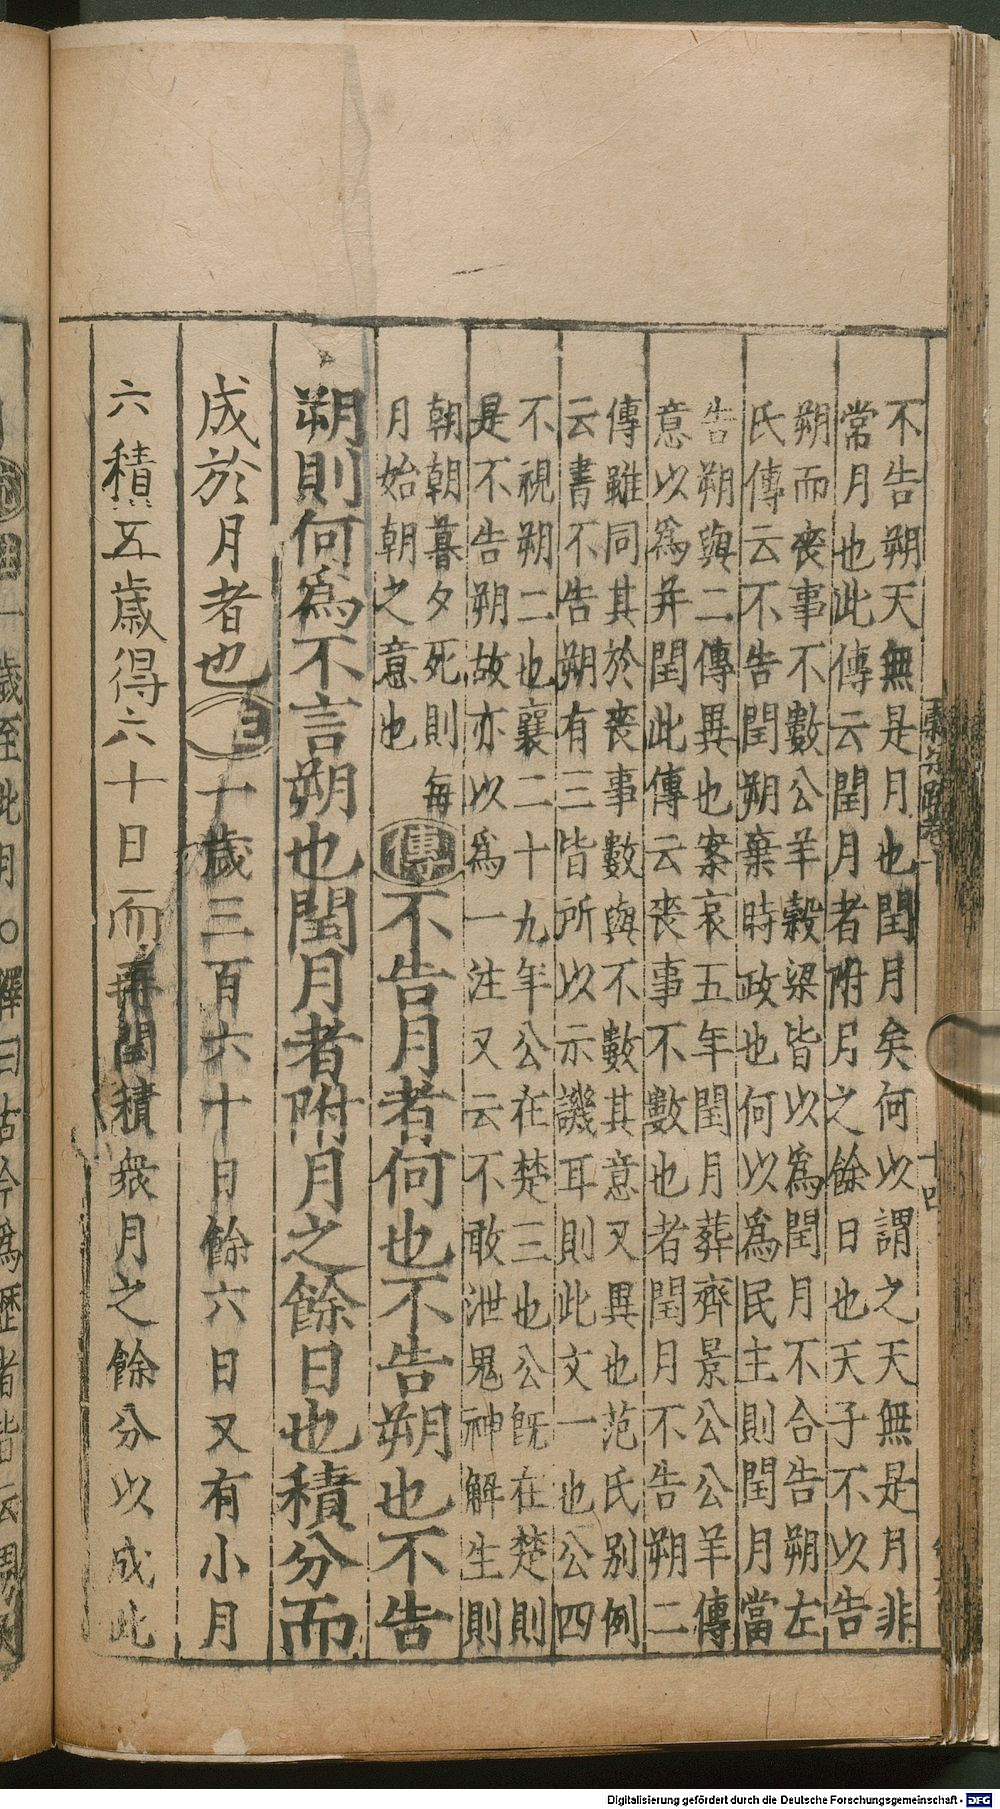 不告朔天無是月也閏月矣何以謂之天無是月非
常月也此傳云閏月者附月之餘日也天子不以告
朔而喪事不數公羊穀梁皆以爲閏月不合告朔左
氏傳云不告閏朔棄時政也何以爲民主則閏月當
告朔與二傳異也案哀五年閏月葬齊景公公羊傳
意以爲并閏此傳云喪事不數也者閏月不告朔二
傳雖同其於喪事數與不數其意又異也范氏別例
云書不告朔有三皆所以示譏耳則此文一也公四
不視朔二也襄二十九年公在楚三也公旣在楚則
是不告朔故亦以爲一注又云不敢泄鬼神解生則
朝朝暮夕死則每
月始朝之意也
傳不告月者何也不告朔也不告
朔則何爲不言朔也閏月者附月之餘日也積分而
成於月者也
一歲三百六十日餘六日又有小月
六積五歲得六十日而再閏積衆月之餘分以成此
十四
一歲至此月○釋曰古今爲歷者皆云周
Digitalisierung gefördert durch die Deutsche Forschungsgemeinschaft - DFG